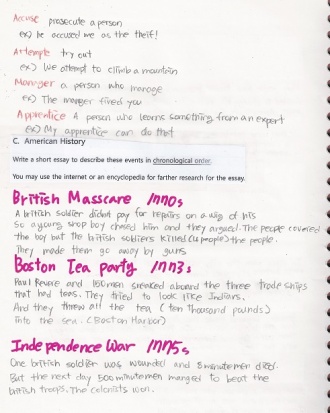 Accuse prosecute a person
ex) he accused me as the theif!
Attempte try out
ex) We attempt to climb a mountain
Manager a person who manage
ex) The manger fired you
Apprentice A person who learns something from an expert
ex) My apprentice can do that
C. American History
Write a short essay to describe these events in chronological order.
You may use the internet or an encyclopedia for farther research for the essay.
British Masscare 1770s
A british soldier didnt pay for repairs on a wig of his
So a young shop boy chased him and they argued. The people covered
the boy but the british soldiers killed (4 people) the people.
They made them go away by guns
Boston Tea party 1773s
Paul Revere and 150 men sneaked aboard the three trade ships
that had teas. They tried to look like Indians.
And they threw all the tea (ten thousand pounds)
into the sea. (Boston Harbor)
Independence War 1775s
One british soldier was wounded and 8 minutemen died.
But the next day 500 minutemen manged to beat the
british troops. The colonists won.